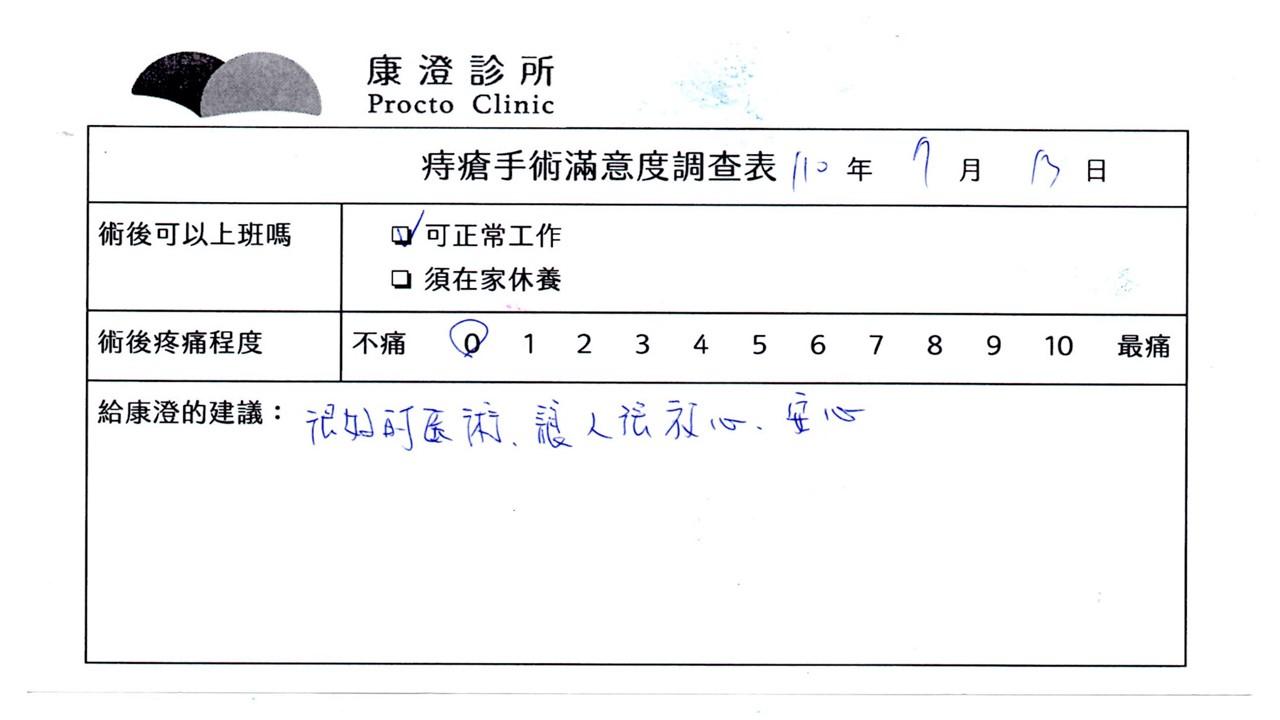 康澄診所
Procto Clinic
痔瘡手術滿意度調查表 110 年 9 月 13 日
術後可以上班嗎
可正常工作
須在家休養
術後疼痛程度 不痛 0 1 2 3 4 5 6 7 8 9 10 最痛
給康澄的建議：很好的医術、讓人很放心、安心